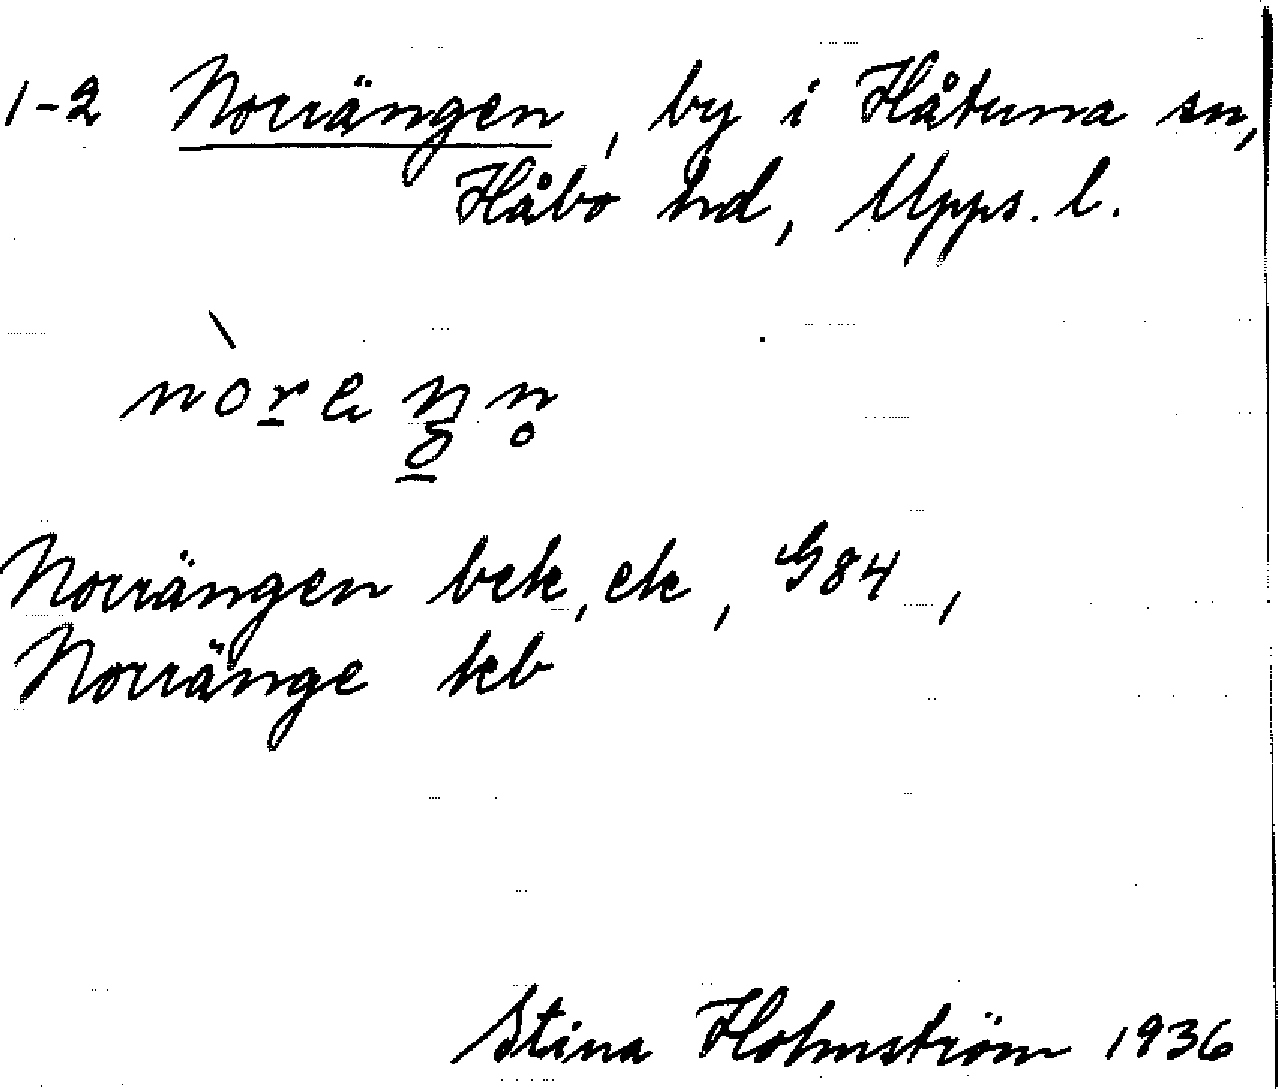 1-2 Norrängen, by i Håtuna sn,
Håbo hd, Upps. l.
Norrängen bek, ek, G84,
Norränge kb
Stina Holmström 1936